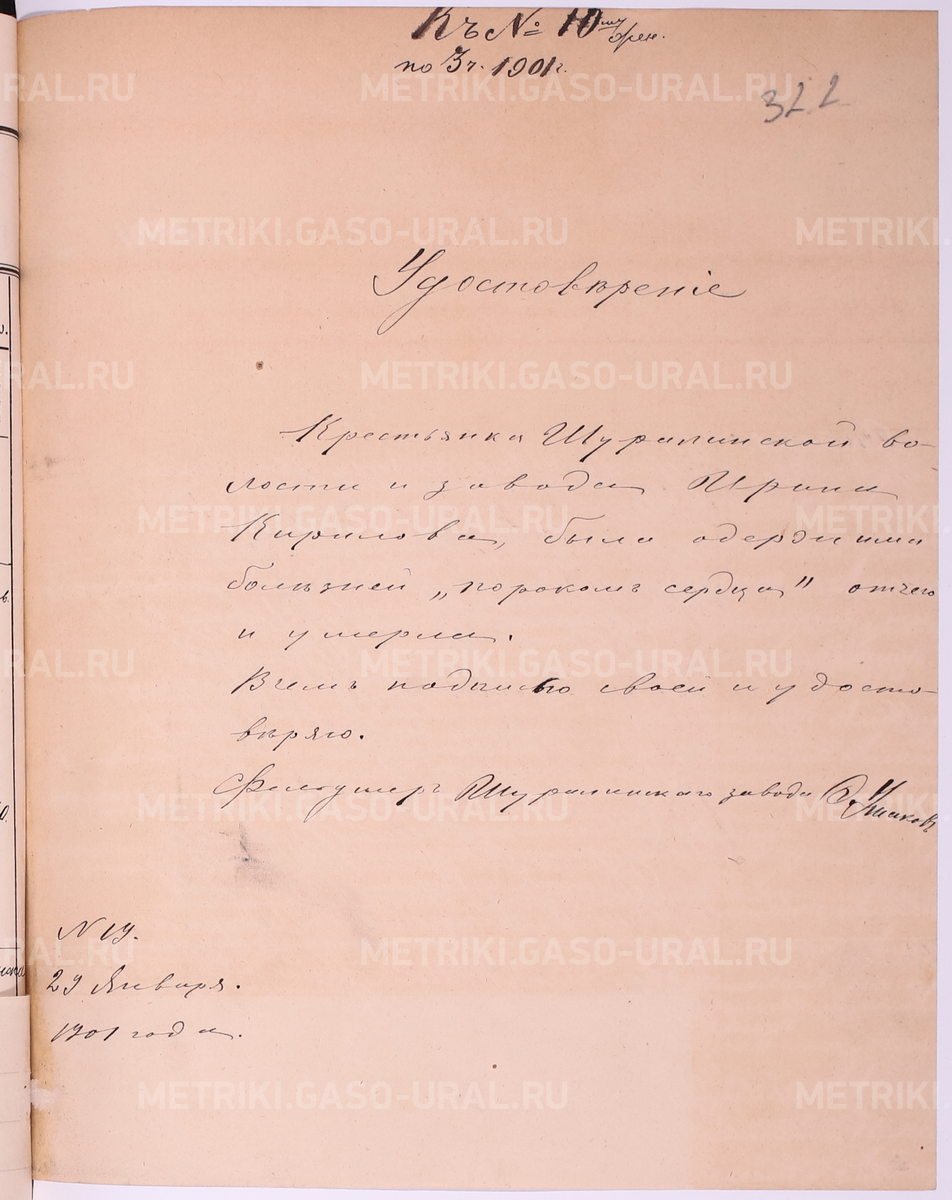 Къ № 10 му жен.
по 3 ч. 1901 г.
322
Удостовѣреніе
Крестьянка Шуралинской во-
лости и завода Ирина
Кирилова, была одержима
болѣзней „порокомъ сердца" отчего
и умерла.
В чемъ подписью своей и удосто-
вѣряю.
Фельдшеръ Шуралинскаго завода Ушаковъ
N 19.
29 Января.
1901 года.
METRIKI.GASO-URAL.RU